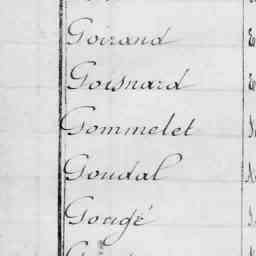 Goirand
Goisnard
Gommelet
Goudal
Gougé